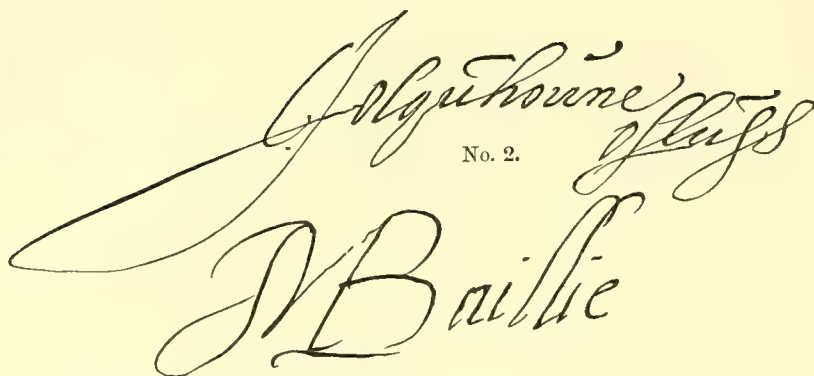 JColquhoune
of luss
No. 2.
M Baillie